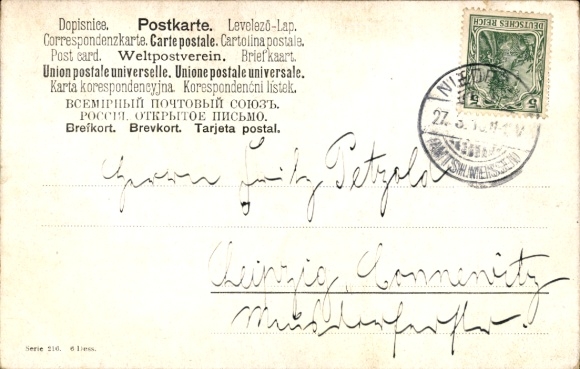 Dopisnice. Postkarte. Levelező-Lap.
Correspondenzkarte. Carte postale. Cartolina postale.
Post card. Weltpostverein. Briefkaart.
Union postale universelle. Unione postale universale.
Karta korespondencyjna. Korespondenční lístek.
ВСЕМІРНЫЙ ПОЧТОВЫЙ СОЮЗЪ.
РОССІЯ. ОТКРЫТОЕ ПИСЬМО.
Brefkort. Brevkort. Tarjeta postal.
DEUTSCHES REICH
5 5
27. 3.
(AMTSH. MEISSEN)
Herrn Fritz Petzold
Leipzig, Connewitz
Serie 216. 6 Dess.